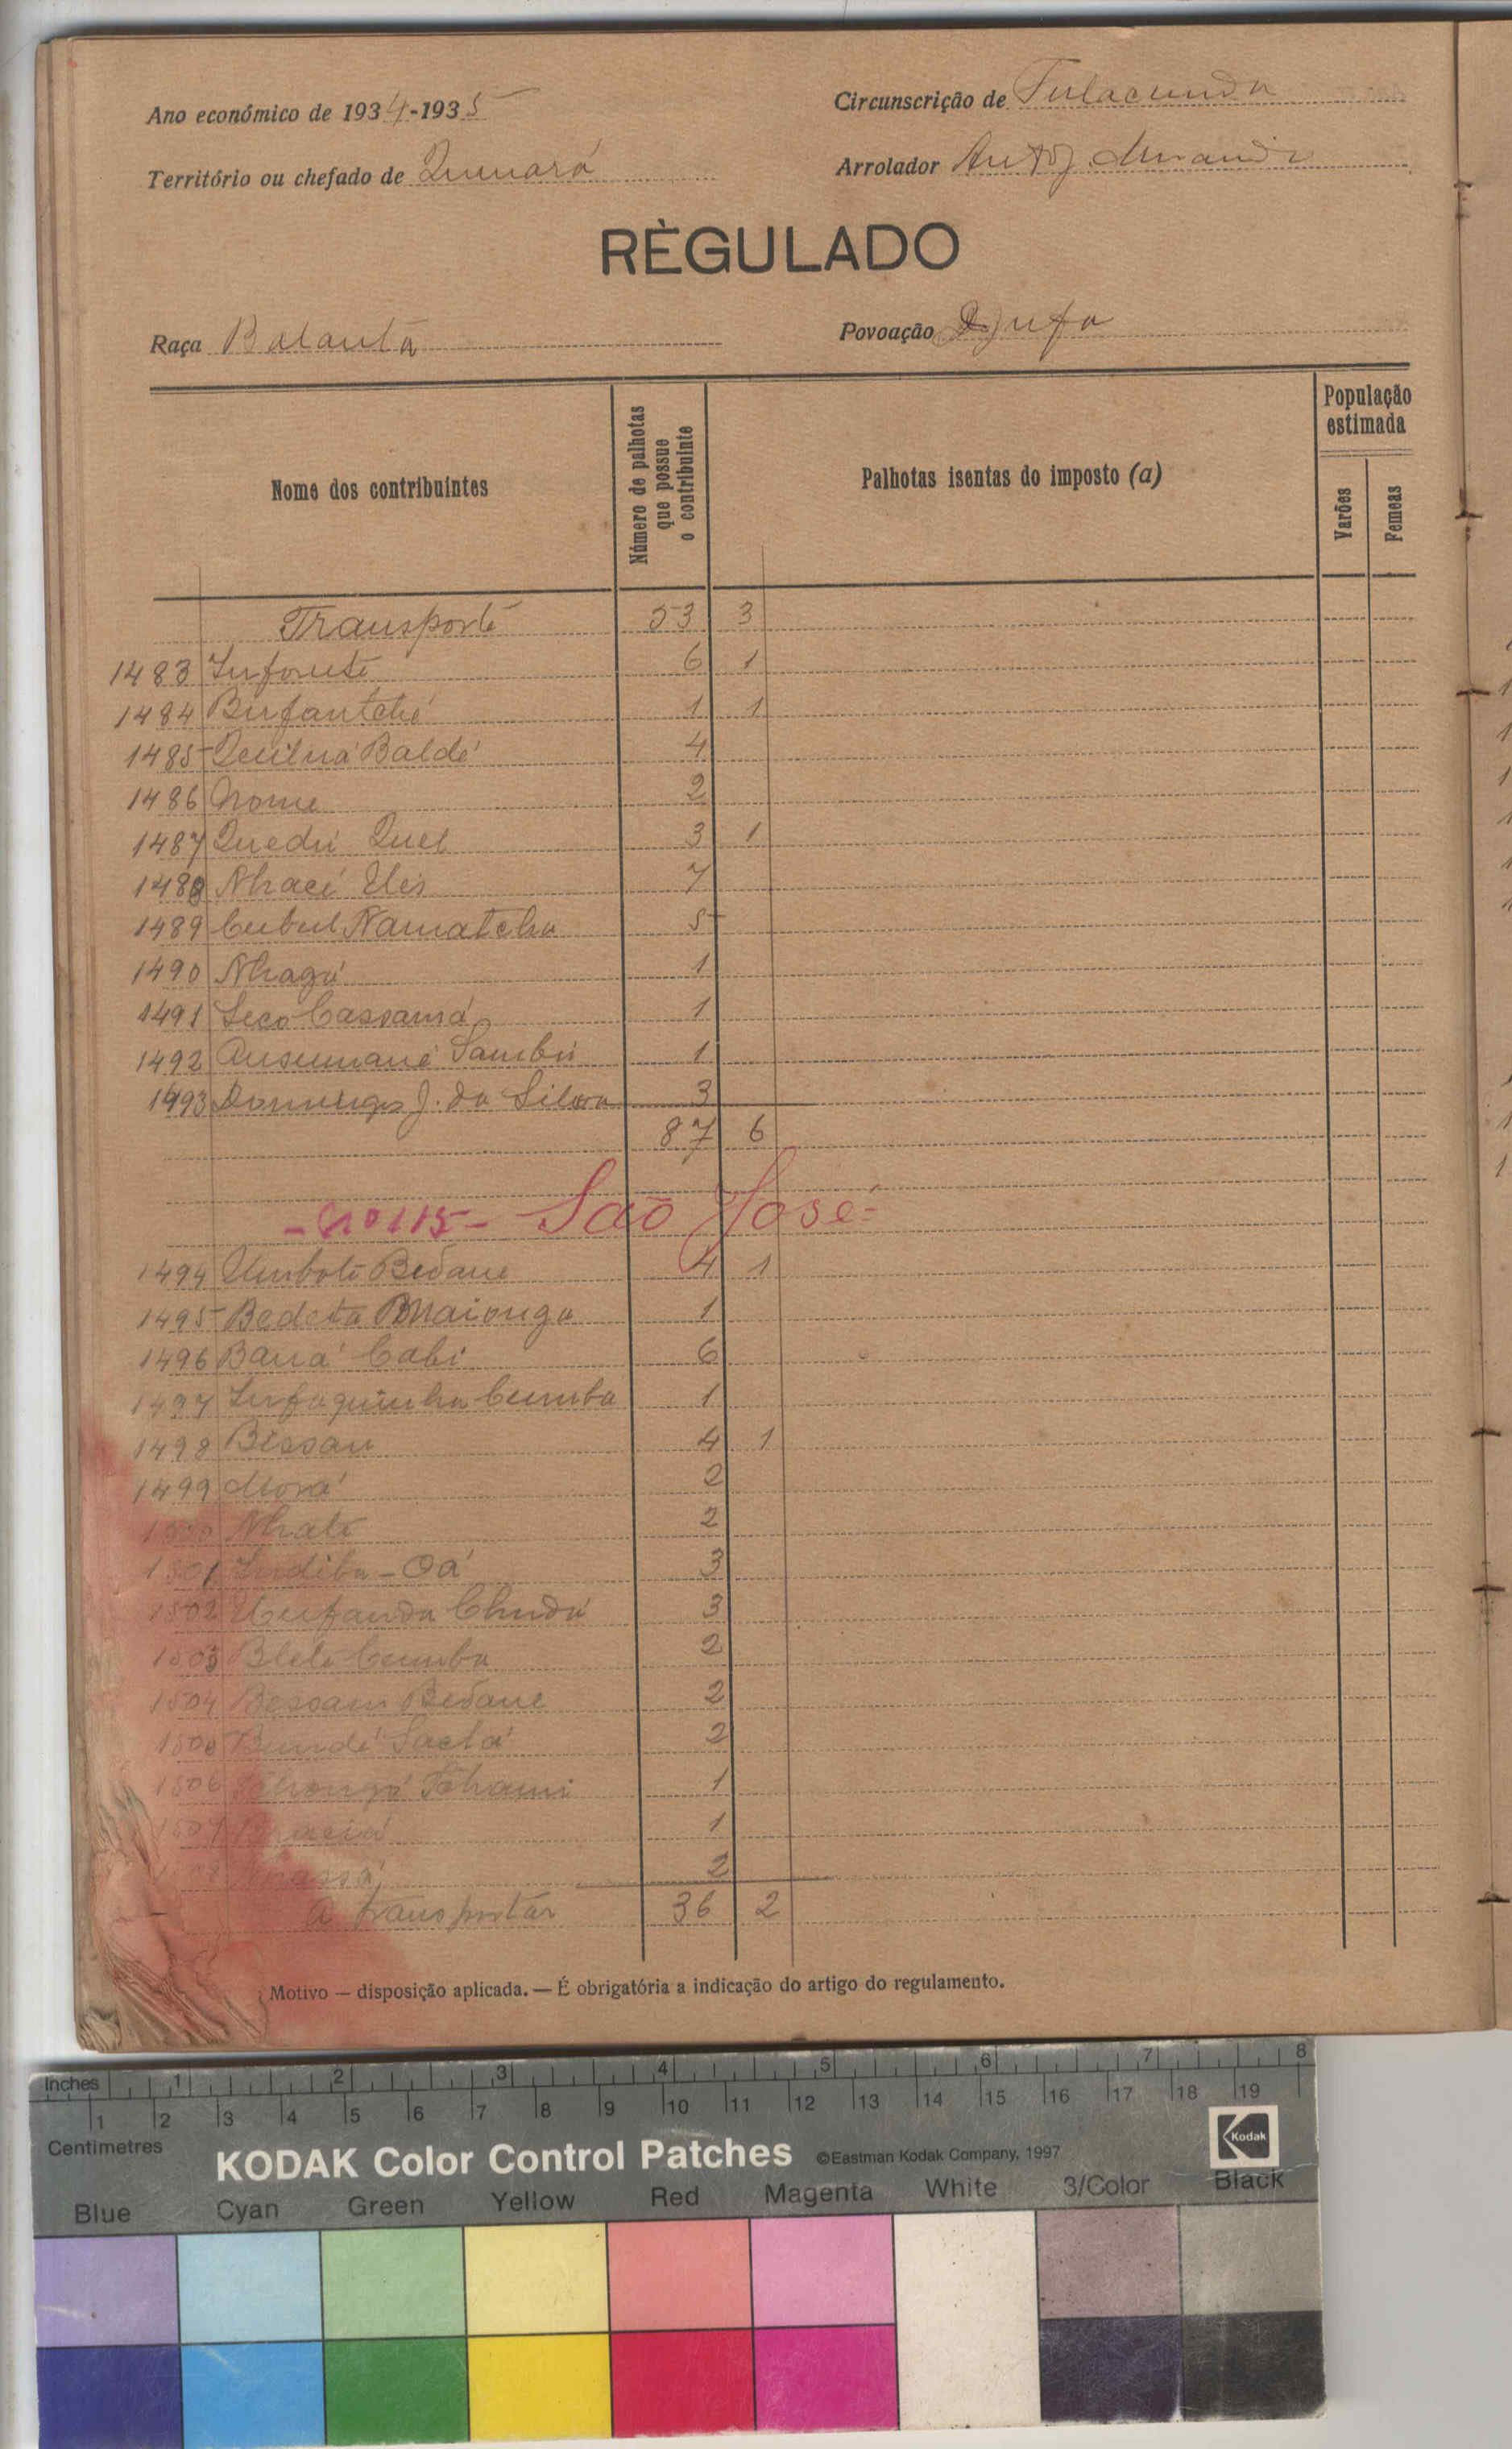 Ano económico de 1934-1935
Circunscrição de Fulacunda
Território ou chefado de Quinará
Arrolador
RÈGULADO
Raça Balanta
Povoação Djufa
Nome dos contribuintes
Número de palhotas que possue o contribuinte
Palhotas isentas do imposto (a)
População estimada
Varões
Femeas
Transporte 53 3
1483 Infonte 6 1
1484 Birfantché 1 1
1485 Quilná Baldé 4
1486 Nome 2
1487 Quedri Quel 3 1
1488 Nhaci 7
1489 Cubul Namatcha 5
1490 Nhaga 1
1491 Seco Cassamá 1
1492 Ansumané Sambú 1
1493 Domingos J. da Silva 3
87 6
São José
1494 Umboté Bedane 4 1
1495 Bedeta 1
1496 Baná Cabi 6
1497 Cumba 1
1498 Bissau 4 1
1499 Morá 2
Nhate 2
1501 Indiba-Oá 3
1502 3
1503 Cumba 2
1504 Bessam Bedane 2
Bundé 2
1506 1
1
2
A transportar 36 2
Motivo — disposição aplicada. — É obrigatória a indicação do artigo do regulamento.
Inches 1 2 3 4 5 6 7 8
1 2 3 4 5 6 7 8 9 10 11 12 13 14 15 16 17 18 19
Centimetres
KODAK Color Control Patches ©Eastman Kodak Company, 1997
Kodak
Blue Cyan Green Yellow Red Magenta White 3/Color Black